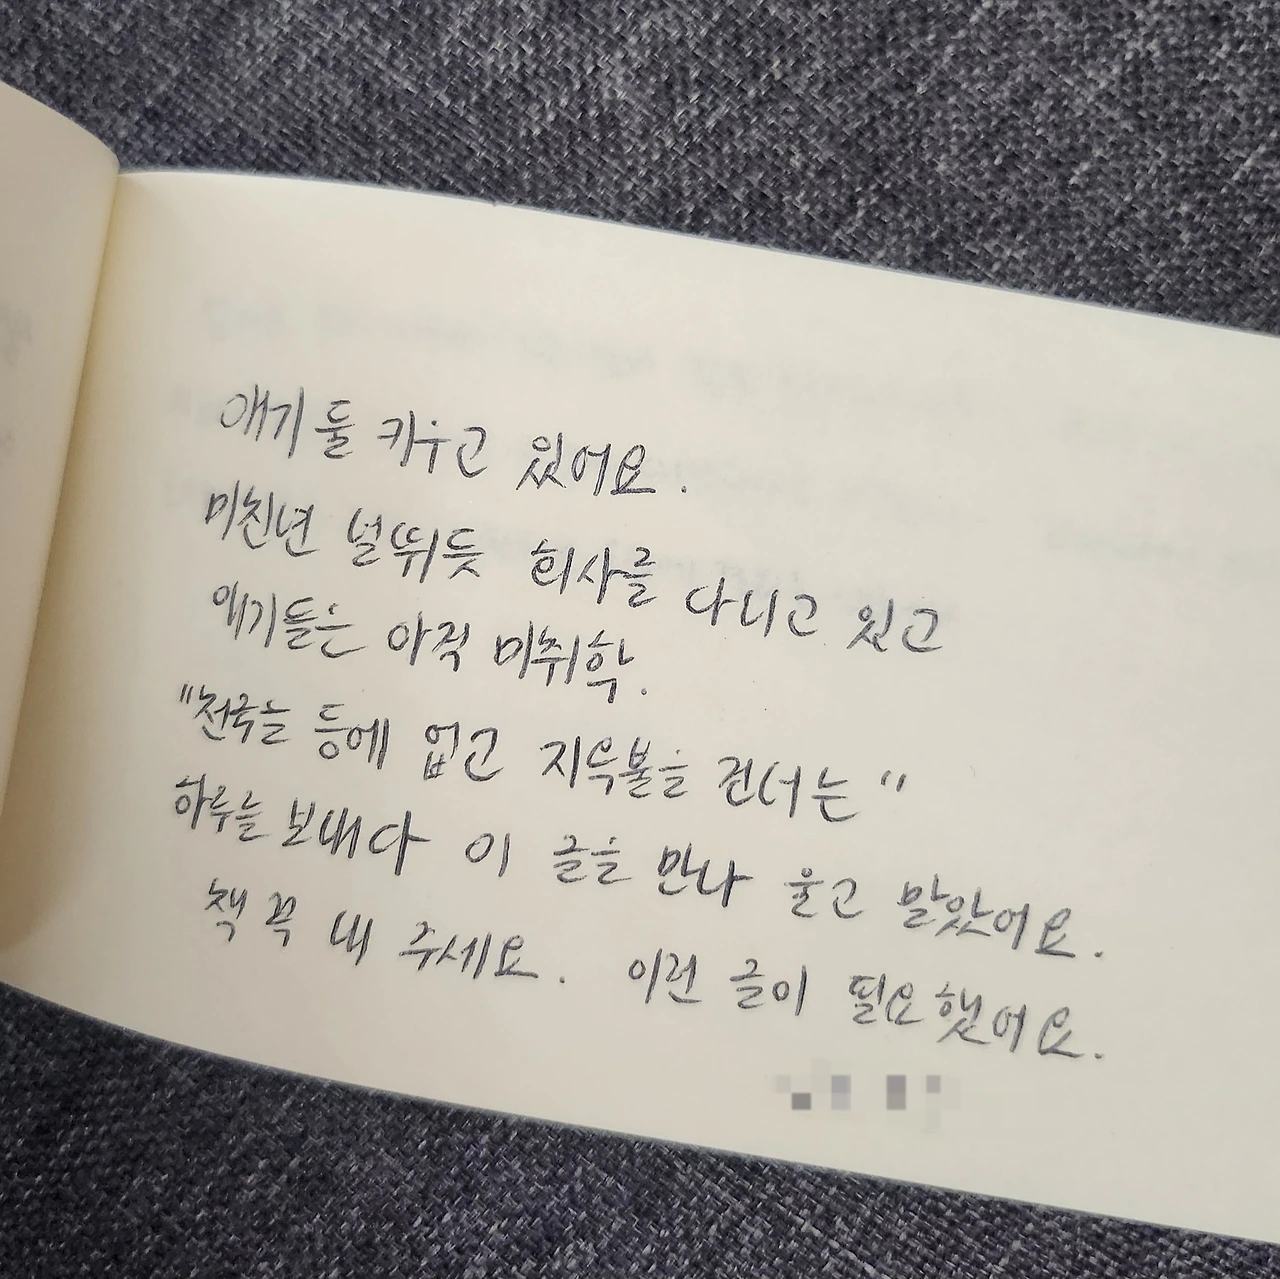 애기 둘 키우고 있어요.
미친년 널뛰듯 회사를 다니고 있고
애기들은 아직 미취학.
"천국을 등에 업고 지옥불을 건너는"
하루를 보내다 이 글을 만나 울고 말았어요.
책 꼭 내 주세요. 이런 글이 필요했어요.